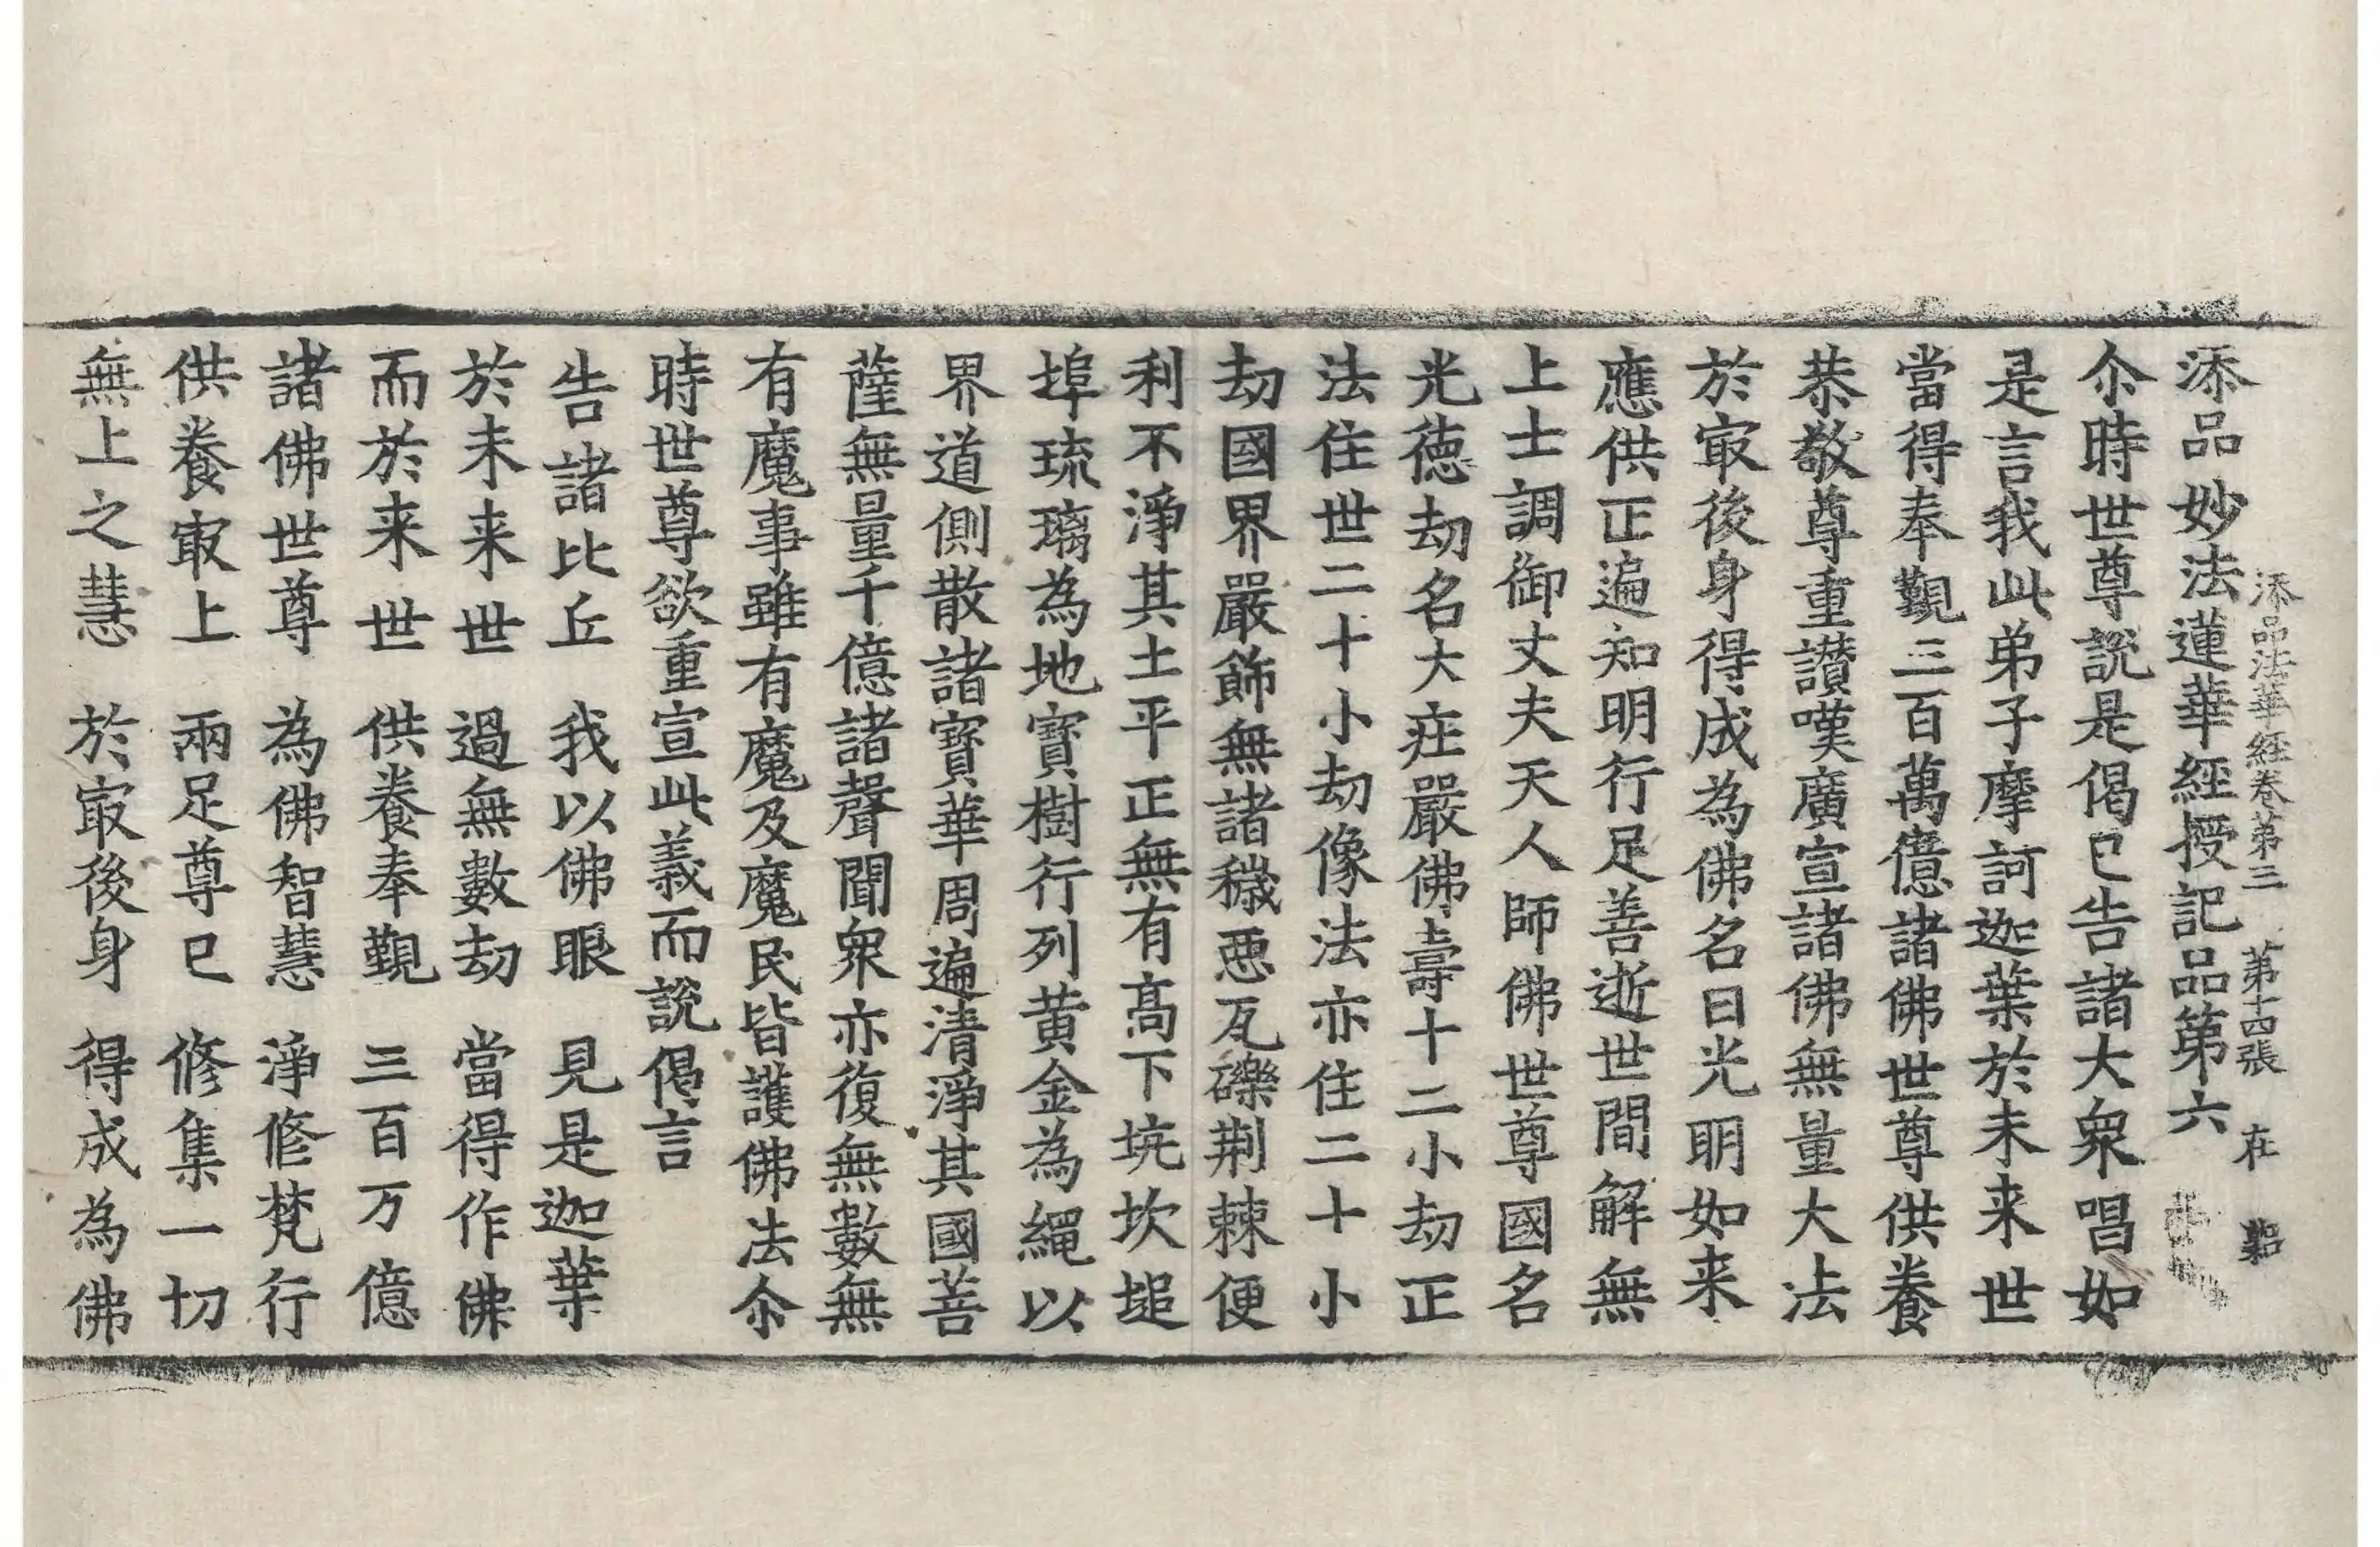 添品法華経卷第三 第十四張 在
添品妙法蓮華經授記品第六
尒時世尊説是偈已告諸大衆唱如
是言我此弟子摩訶迦葉於未来世
當得奉覲三百萬億諸佛世尊供養
恭敬尊重讃嘆廣宣諸佛無量大法
於㝡後身得成為佛名曰光明如来
應供正遍知明行足善逝世間解無
上士調御丈夫天人師佛世尊國名
光徳劫名大莊嚴佛壽十二小劫正
法住世二十小劫像法亦住二十小
劫國界嚴飾無諸穢惡瓦礫荆棘便
利不淨其土平正無有髙下坑坎塠
埠琉璃為地寶樹行列黄金為繩以
界道側散諸寶華周遍清淨其國菩
薩無量千億諸聲聞衆亦復無數無
有魔事雖有魔及魔民皆護佛法尒
時世尊欲重宣此義而説偈言
告諸比丘 我以佛眼 見是迦葉
於未来世 過無數劫 當得作佛
而於来世 供養奉覲 三百万億
諸佛世尊 為佛智慧 淨修梵行
供養㝡上 兩足尊已 修集一切
無上之慧 於㝡後身 得成為佛